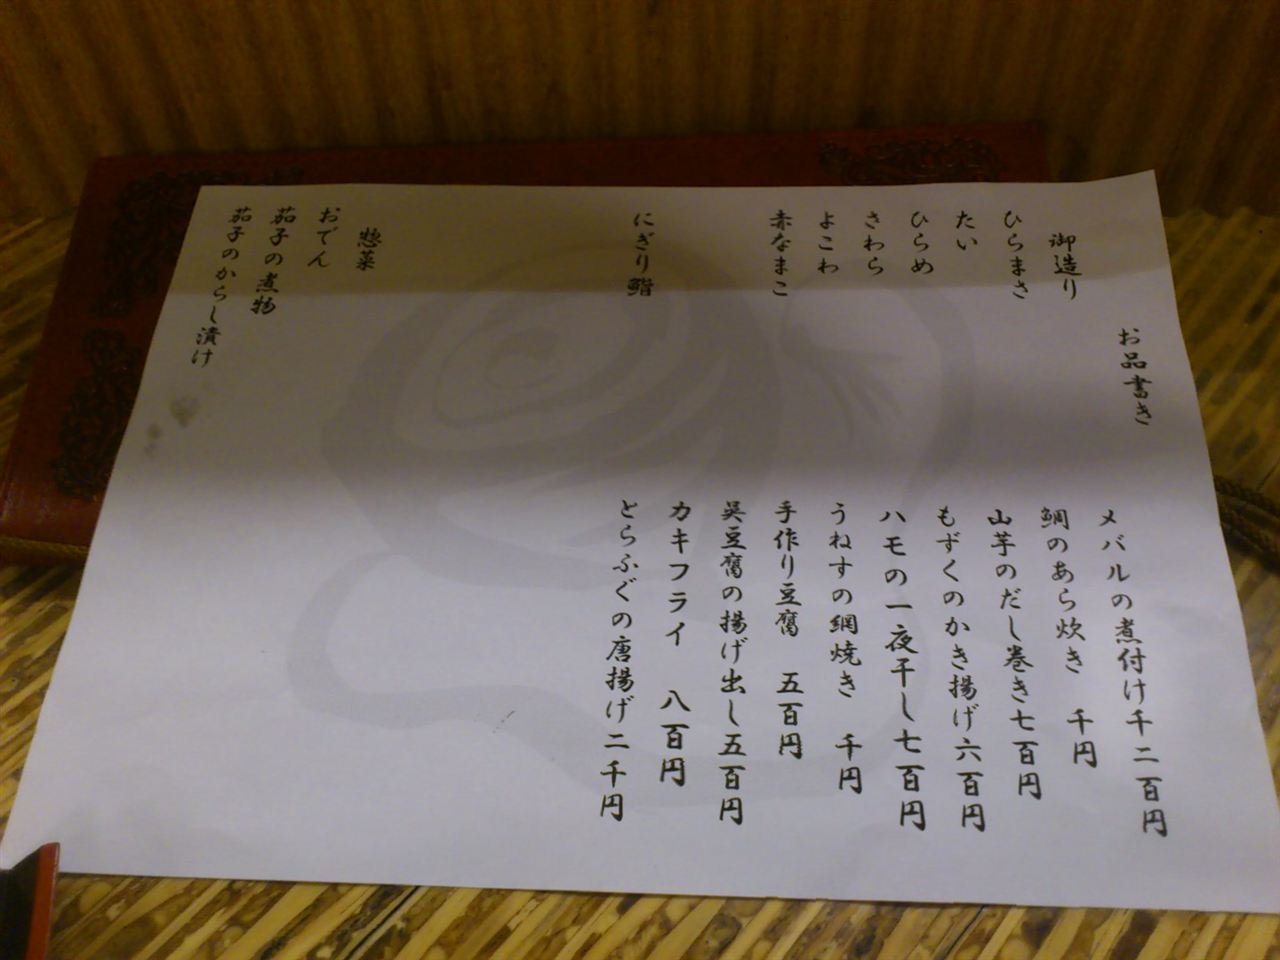 お品書き
御造り
ひらまさ
たい
ひらめ
さわら
よこわ
赤なまこ
にぎり鮨
惣菜
おでん
茄子の煮物
茄子のからし漬け
メバルの煮付け千二百円
鯛のあら炊き 千円
山芋のだし巻き七百円
もずくのかき揚げ六百円
ハモの一夜干し七百円
うねすの網焼き 千円
手作り豆腐 五百円
呉豆腐の揚げ出し五百円
カキフライ 八百円
とらふぐの唐揚げ二千円